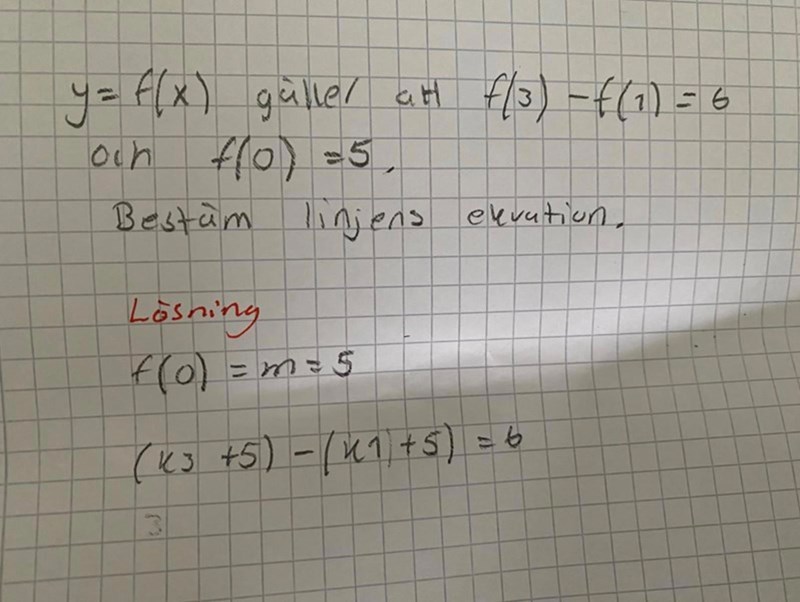 y = f(x) gäller att f(3) - f(1) = 6
och f(0) = 5.
Bestäm linjens ekvation.
Lösning
f(0) = m = 5
(k3 +5) - (k1 +5) = 6
3